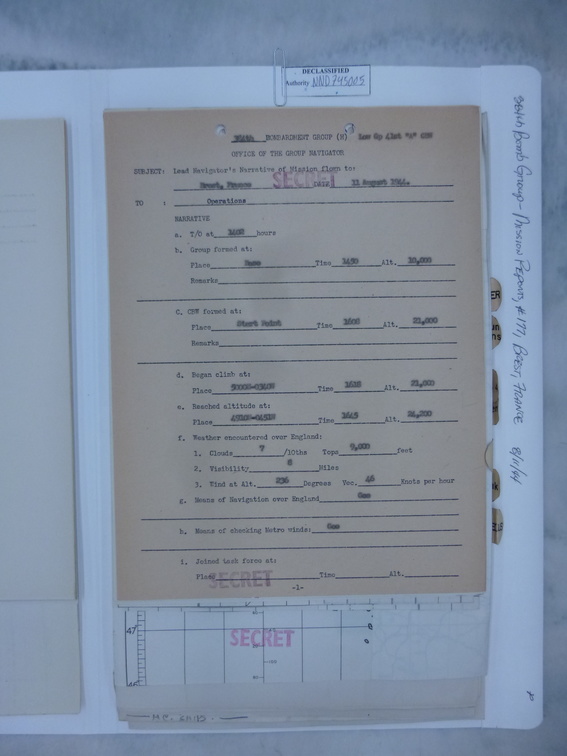 DECLASSIFIED
Authority NND745005
384th BOMBARDMENT GROUP (H) Low Gp 41st "A" CBW
OFFICE OF THE GROUP NAVIGATOR
SUBJECT: Lead Navigator's Narrative of Mission flown to:
Brest, France DATE 11 August 1944.
SECRET
TO : Operations
NARRATIVE
a. T/O at hours
b. Group formed at:
Place Base Time 1450 Alt. 20,000
Remarks
C. CBW formed at:
Place Start Point Time 1600 Alt. 21,000
Remarks
d. Began climb at:
Place Time Alt. 21,000
e. Reached altitude at:
Place Time 1645 Alt.
f. Weather encountered over England:
1. Clouds 7 /10ths Tops 9,000 feet
2. Visibility 8 Miles
3. Wind at Alt. 236 Degrees Vec. 46 Knots per hour
g. Means of Navigation over England Gee
h. Means of checking Metro winds: Gee
i. Joined task force at:
Place Time Alt.
SECRET
-1-
47
SECRET
46
384th Bomb Group - Mission Report, #177, BREST, FRANCE 8/11/44